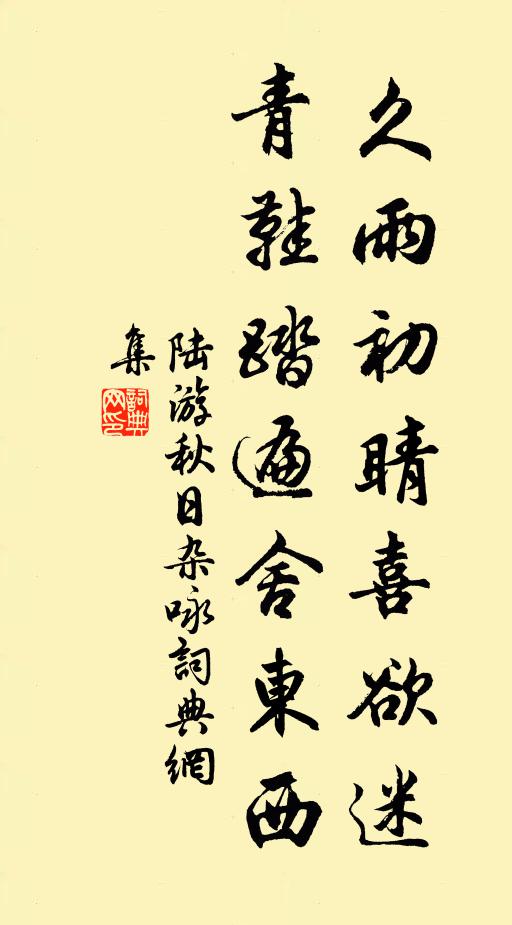 久雨初晴喜欲迷
青鞋踏遍舍東西
陆游秋日杂咏詞典網
集
詞典
网印